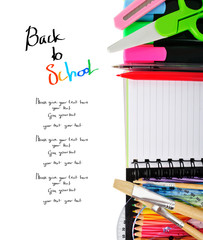 Back
to
School
Please give your text here
your text
Give your text
your text- your text
Please give your text here
your text
Give your text
your text- your text
Please give your text here
your text
Give your text
your text- your text